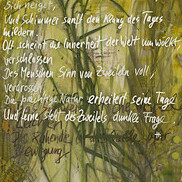 Sich neiget,
Und Schimmer sanft den Klang des Tages
mildern.
Oft scheint das Innerheit der Welt umwölkt
verschlossen
Des Menschen Sinn von Zweifeln voll,
verdrossen
Die prächtige Natur erheitert seine Tage
Und ferne steht des Zweifels dunkle Frage